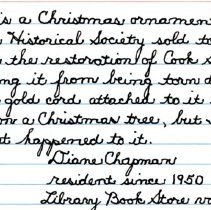 is a Christmas ornament
Historical Society sold to
the restoration of Cook
ing it from being torn d
gold cord attached to it.
on a Christmas tree, but
t happened to it.
Diane Chapman
resident since 1950
Library Book Store